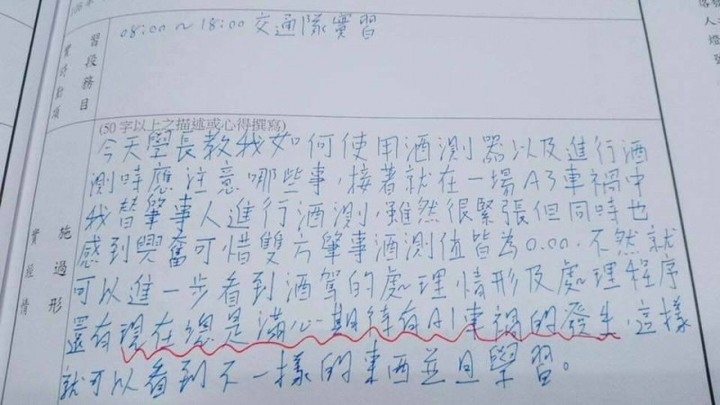 08:00～18:00 交通隊實習
習段務目
(50字以上之描述或心得撰寫)
今天學長教我如何使用酒測器以及進行酒
測時應注意哪些事,接著就在一場A3車禍中
我替肇事人進行酒測,雖然很緊張但同時也
感到興奮可惜雙方肇事酒測值皆為0.00.不然就
可以進一步看到酒駕的處理情形及處理程序
還有現在總是滿心期待有A1車禍的發生,這樣
就可以看到不一樣的東西並且學習。
施過形
實經情